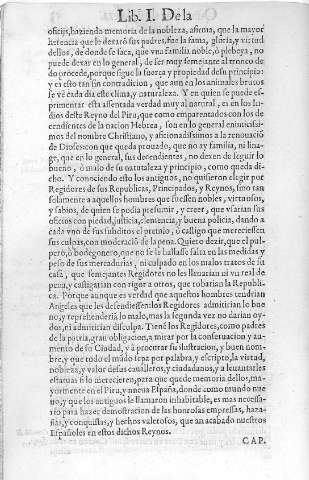 Lib. I. De la
oficijs, haziendo memoria de la nobleza, afirma, que la mayor
herencia que le dexarõ sus padres, fue la fama, gloria, y virtud
dellos, de donde se saca, que vna familia noble, ò plebeya, no
puede dexar en lo general, de ser muy semejante al tronco de
do procede, porque sigue la fuerça y propiedad de su principio:
y es esto tan sin contradicion, que aun en los animales brutos
se vè cada dia este clima, y naturaleza. Y en quien se puede es-
primentar esta assentada verdad muy al natural, es en los In-
dios deste Reyno del Piru, que como emparentados con los de
cendientes de la nacion Hebrea, son en lo general
mos del nombre Christiano, y aficionadissimos a la renouaciõ
de Dioses: con que queda prouado, que no ay familia, ni lina-
ge, que en lo general, sus decendientes, no dexen de seguir lo
bueno, ò malo de su naturaleza y principio, como queda di-
cho. Y conociendo esto los antiguos, no quisieron elegir por
Regidores de sus Republicas, Principados, y Reynos, sino tan
solamente a aquellos hombres que fuessen nobles, virtuosos,
y sabios, de quien se podia presumir, y creer, que vsarian sus
oficios con piedad, justicia, clemencia, y buena policia, dando a
cada vno de sus subditos el premio, ò castigo que mereciessen
sus culpas, con moderaciõ de la pena. Quiero dezir, que el pul-
pero, ò bodegonero, que no se le hallasse falta en las medidas y
peso de sus mercadurias, ni culpado en los malos tratos de su
casa, que semejantes Regidores no les lleuarian ni vn real de
pena, y castigarian con rigor a otros, que robarian la Republi-
ca. Porque aunque es verdad que aquestos hombres tendrian
Angeles que les defendiessen los Regidores admitirian lo bue
no, y reprehenderiã lo malo, mas la segunda vez no darian oy-
dos, ni admitirian disculpa. Tienẽ los Regidores, como padres
de la patria, gran obligacion, a mirar por la conseruacion y au-
mento de su Ciudad, y a procurar su ilustracion, y buen nom-
bre, y que todo el mũdo sepa por palabra, y escripto, la virtud,
nobleza, y valor de sus caualleros, y ciudadanos, y a leuantarles
estatuas si lo merecieren, para que quede memoria dellos, ma-
yormente en el Piru, y nueua España, donde como mundo nue
uo, y que los antiguos le llamaron inhabitable, es mas neces-
sario para hazer demostracion de las honrosas empressas, haza-
ñas, y conquistas, y hechos valerosos, que an acabado nuestros
Españoles en estos dichos Reynos.
CAP.